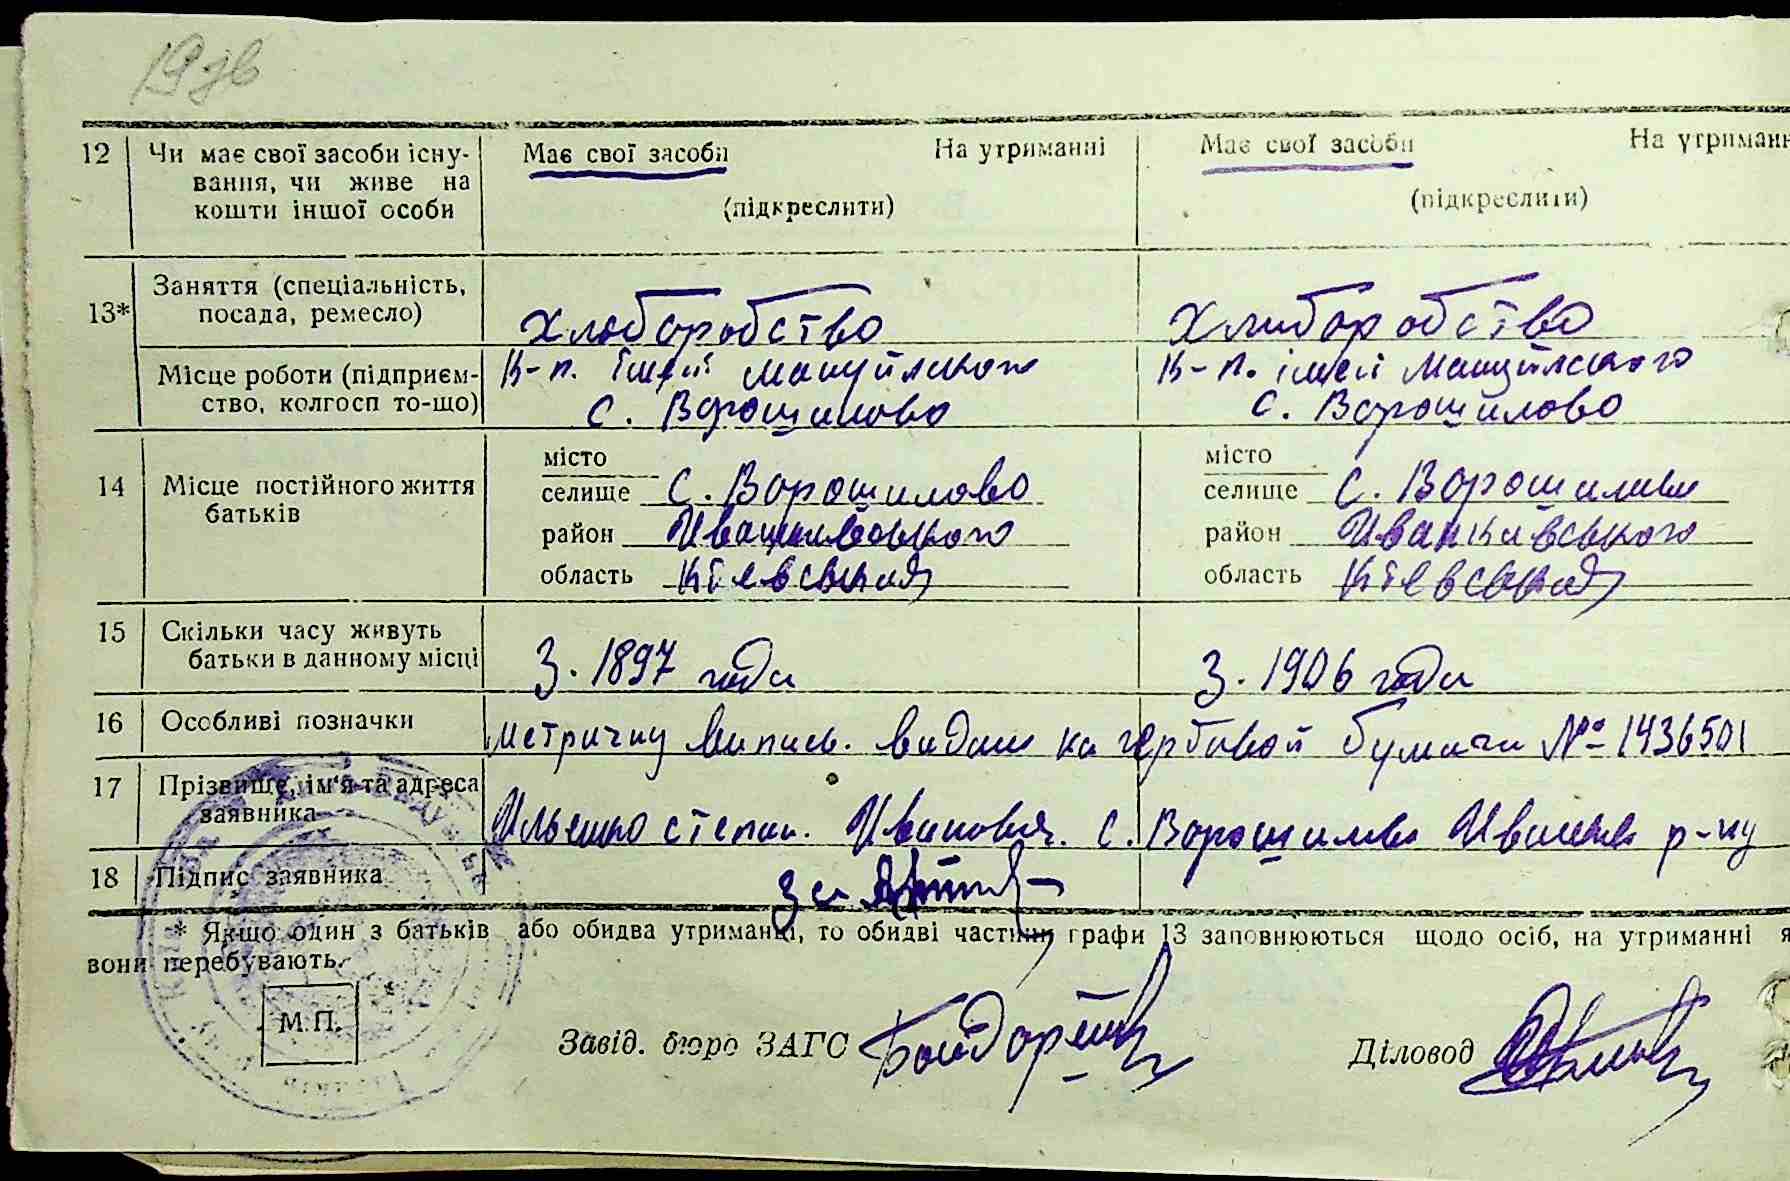 19 зв
12 Чи має свої засоби існу- Має свої засоби На утриманні Має свої засоби На утриманн
вання, чи живе на
кошти іншої особи (підкреслити) (підкреслити)
13* Заняття (спеціальність,
посада, ремесло) Хлоборобство Хлиборобство
Місце роботи (підприєм- К-п. імєй мануйлского К-п. імєй Мануйлского
ство, колгосп то-що) с. Ворошилово с. Ворошилово
14 Місце постійного життя місто місто
батьків селище с. Ворошилово селище с. Ворошилово
район Иванкивського район Иванкивського
область Кіевськая область Кіевськая
15 Скільки часу живуть
батьки в данному місці З. 1897 года З. 1906 года
16 Особливі позначки метричну випись. видано на гербовой бумаги № 1436501
17 Прізвище, ім'я та адреса
заявника Ильенко степан. Иванович. с. Ворошилово Иванкив р-ну
18 Підпис заявника За
* Якщо один з батьків або обидва утриманці, то обидві частини графи 13 заповнюються щодо осіб, на утриманні я
вони перебувають.
М. П.
Завід. бюро ЗАГС Діловод